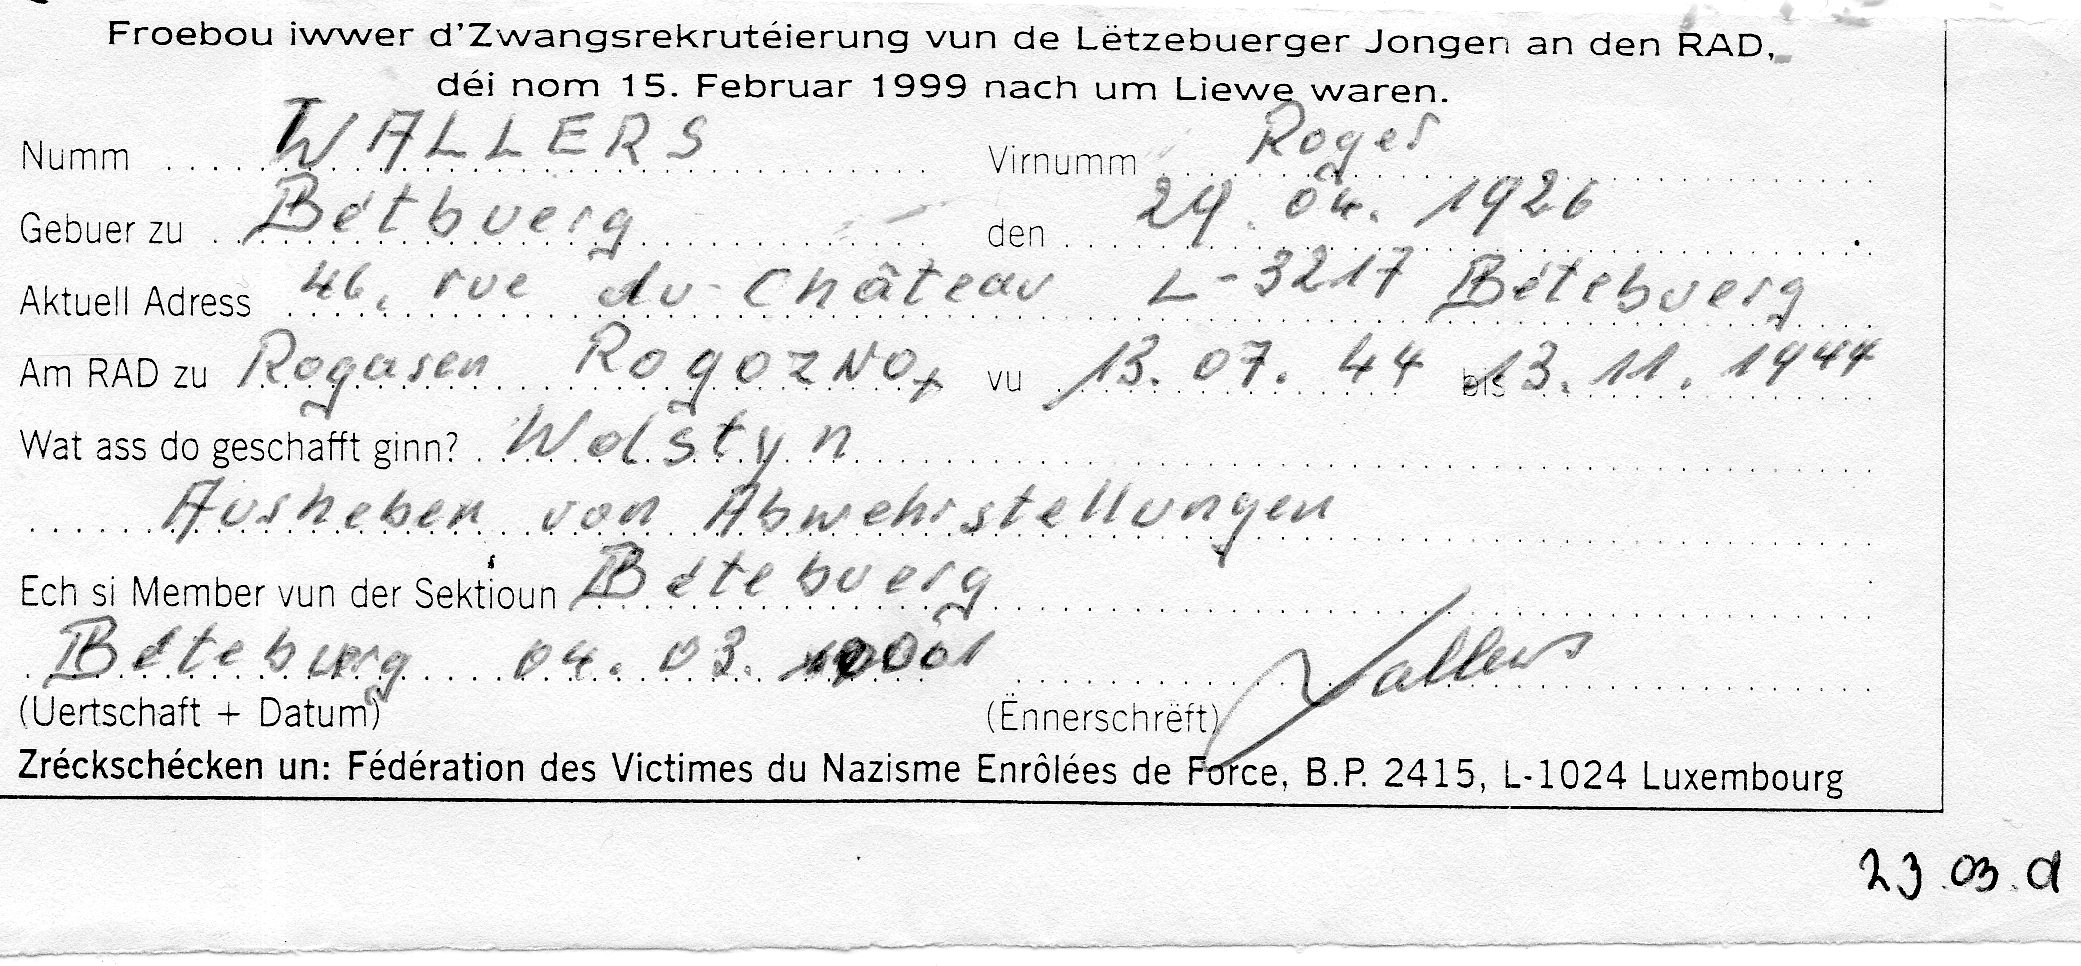 Froebou iwwer d'Zwangsrekrutéierung vun de Lëtzebuerger Jongen an den RAD,
déi nom 15. Februar 1999 nach um Liewe waren.
Numm WALLERS Virnumm Roger
Gebuer zu Bétbuerg den 29.04.1926
Aktuell Adress 46, rue du Château L-3217 Bétebuerg
Am RAD zu Rogasen ROGOZNO+ vu 13.07.44 bis 13.11.1944
Wat ass do geschafft ginn? Wolstyn
Ausheben von Abwehrstellungen
Ech si Member vun der Sektioun Bétebuerg
Béteburg 04.03.
(Uertschaft + Datum) (Ënnerschrëft) Wallers
Zréckschécken un: Fédération des Victimes du Nazisme Enrôlées de Force, B.P. 2415, L-1024 Luxembourg
23.03.01